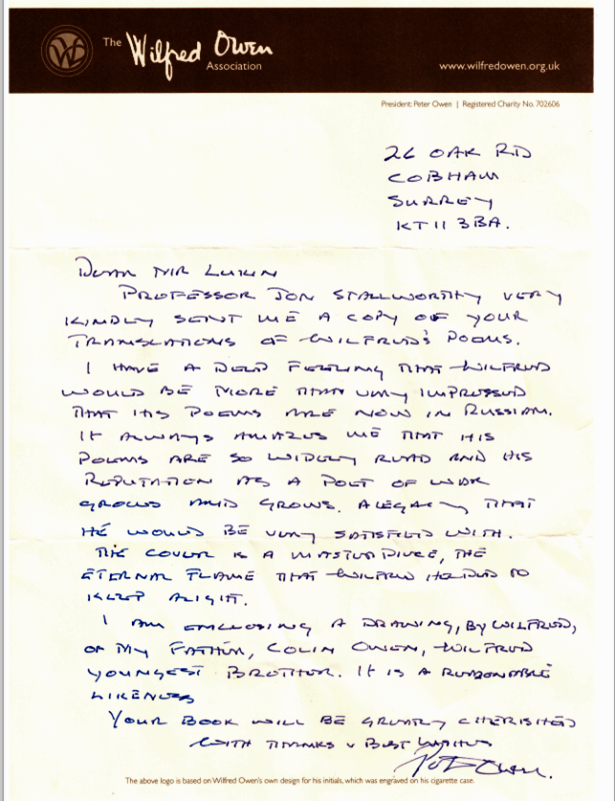 The Wilfred Owen
Association
www.wilfredowen.org.uk
President: Peter Owen | Registered Charity No. 702606
26 OAK RD
COBHAM
SURREY
KT11 3BA.
DEAR MR LUKIN
PROFESSOR JON STALLWORTHY VERY
KINDLY SENT ME A COPY OF YOUR
TRANSLATIONS OF WILFRED'S POEMS.
I HAVE A DEEP FEELING THAT WILFRED
WOULD BE MORE THAN VERY IMPRESSED
THAT HIS POEMS ARE NOW IN RUSSIAN.
IT ALWAYS AMAZES ME THAT HIS
POEMS ARE SO WIDELY READ AND HIS
REPUTATION AS A POET OF WAR
GROWS AND GROWS. A LEGACY THAT
HE WOULD BE VERY SATISFIED WITH.
THE COVER IS A MASTERPIECE, THE
ETERNAL FLAME THAT WILFRED HELPED TO
KEEP ALIGHT.
I AM ENCLOSING A DRAWING, BY WILFRED,
OF MY FATHER, COLIN OWEN, WILFRED
YOUNGEST BROTHER. IT IS A REASONABLE
LIKENESS
YOUR BOOK WILL BE GREATLY CHERISHED
WITH THANKS & BEST WISHES
Peter Owen.
The above logo is based on Wilfred Owen's own design for his initials, which was engraved on his cigarette case.